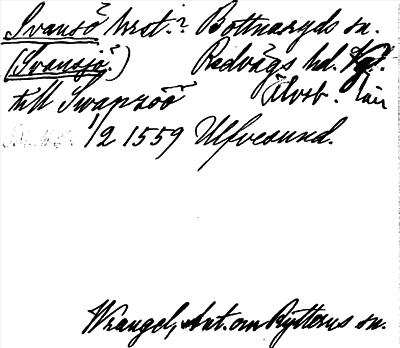 Svansö hrot.? Bottnaryds sn.
(Svansjö.) Redvägs hd.
till Swapzöö Älvsb. län
1/2 1559 Ulfvesund.
Wrangel, Ant. om Rytterns sn.